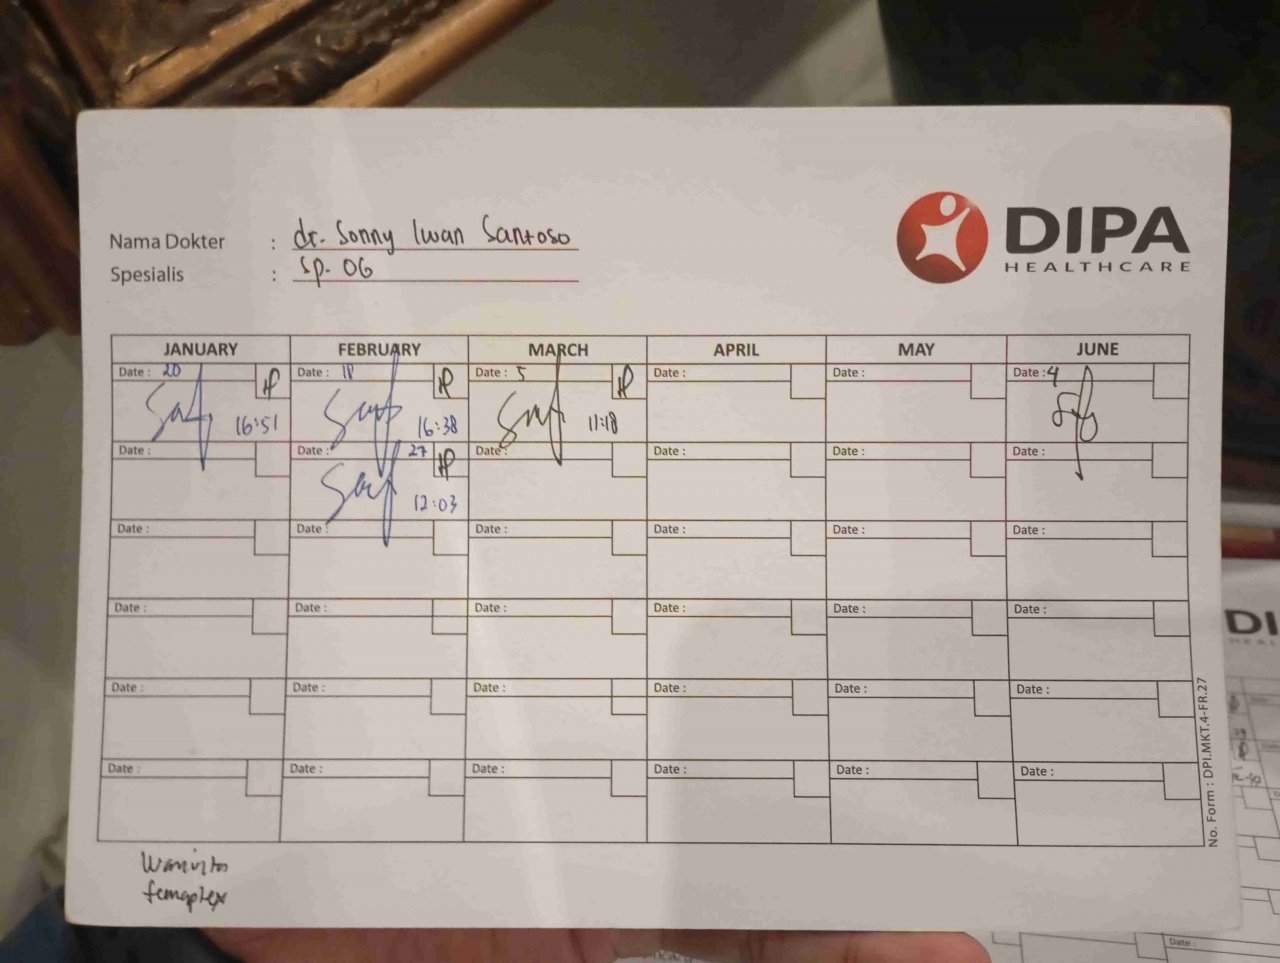 DIPA
HEALTHCARE
Nama Dokter : dr. Sonny Iwan Santoso
Spesialis : Sp. OG
JANUARY FEBRUARY MARCH APRIL MAY JUNE
Date : 20 Date : 18 Date : 5 Date : Date : Date : 4
16:51 16:38 11:18
Date : Date : 27 Date : Date : Date : Date :
12:03
Date : Date : Date : Date : Date : Date :
Date : Date : Date : Date : Date : Date :
Date : Date : Date : Date : Date : Date :
Date : Date : Date : Date : Date : Date :
No. Form : DPI.MKT.4-FR.27
femaplex
DI
Date :